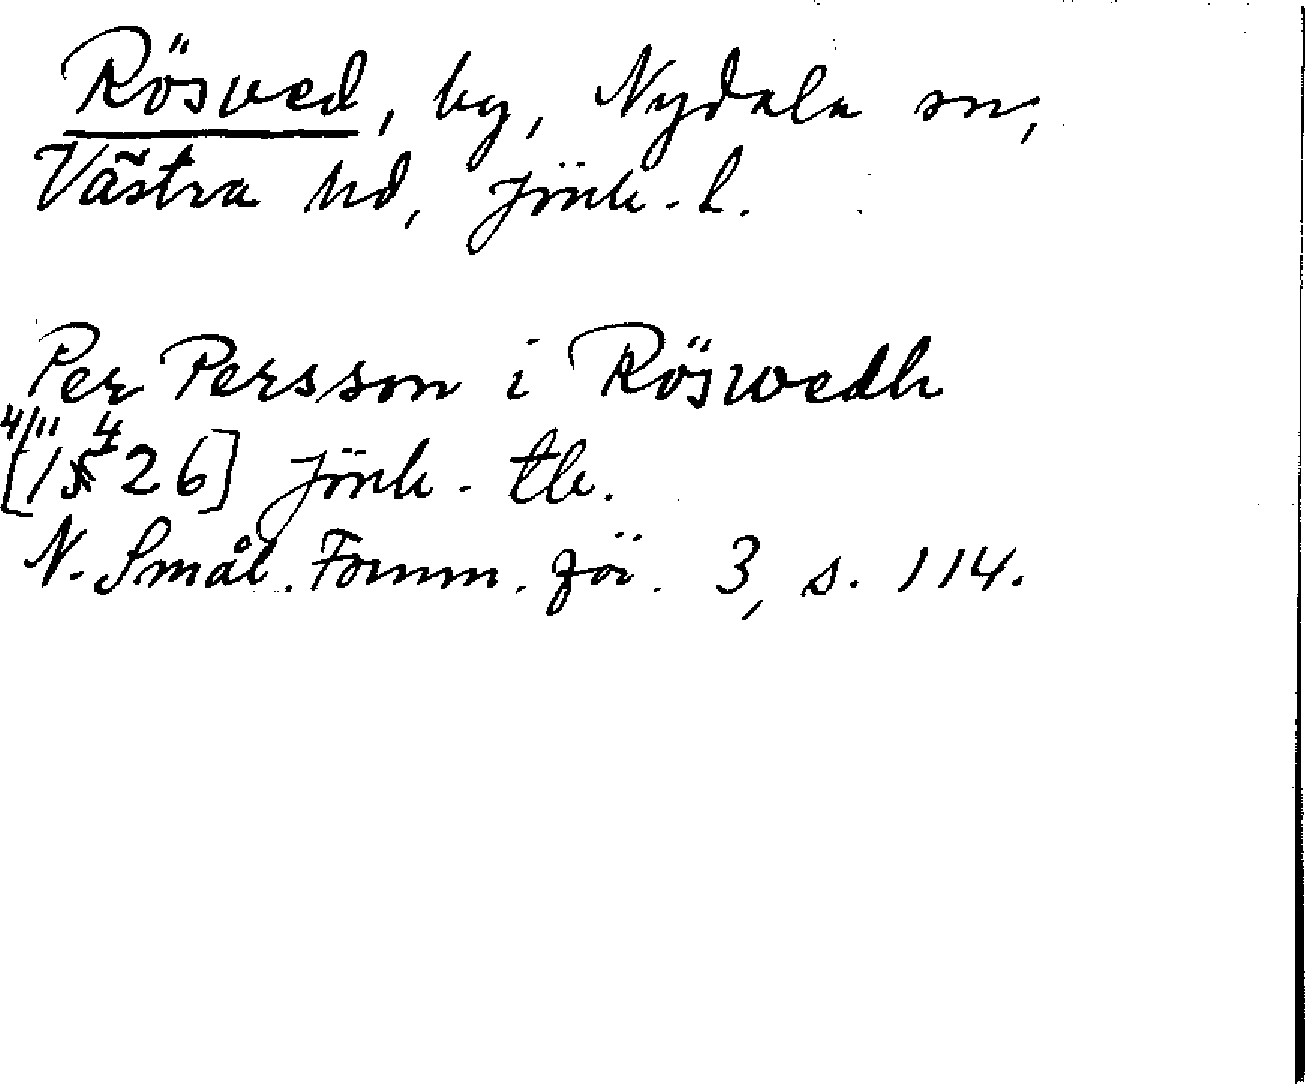 Rösved, by, Nydala sn,
Västra hd, Jönk.l.
Per Persson i Röswedh
4/11 4
[1526] Jönk. tb.
N. Smål. Fornm. för. 3, s. 114.